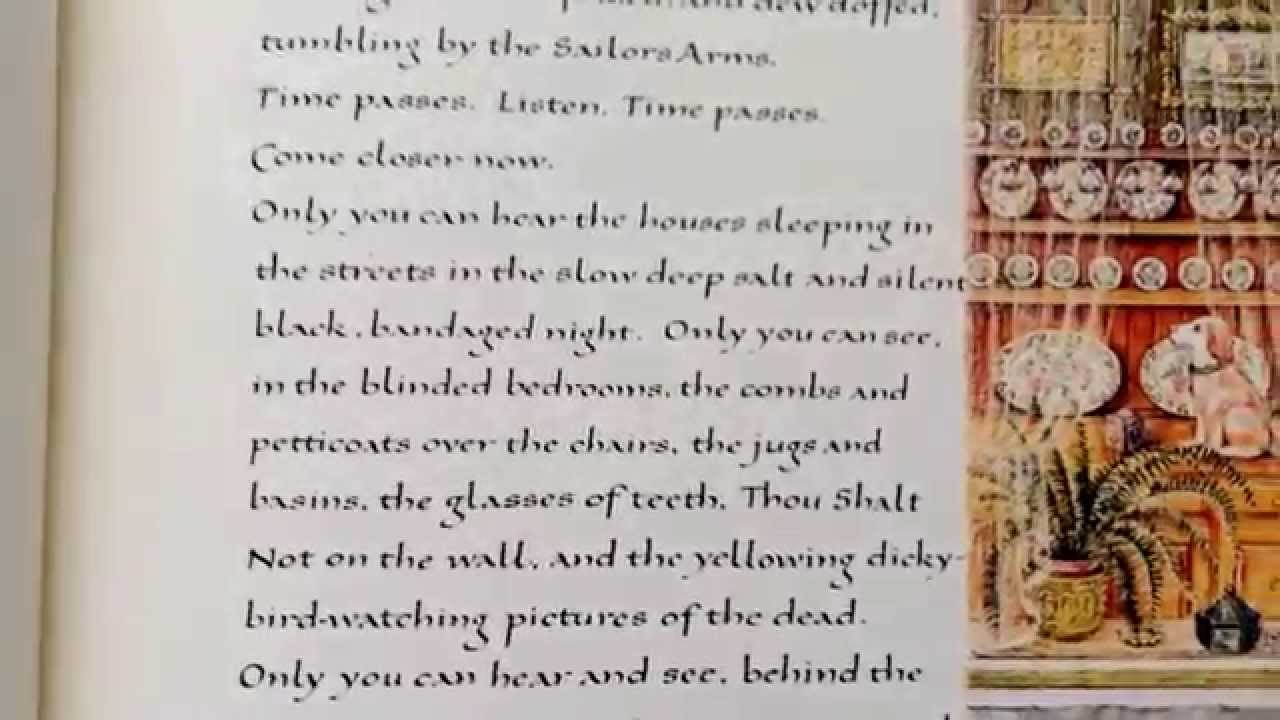 and dew doffed,
tumbling by the Sailors Arms.
Time passes. Listen. Time passes.
Come closer now.
Only you can hear the houses sleeping in
the streets in the slow deep salt and silent
black, bandaged night. Only you can see,
in the blinded bedrooms, the combs and
petticoats over the chairs, the jugs and
basins, the glasses of teeth, Thou Shalt
Not on the wall, and the yellowing dicky-
bird-watching pictures of the dead.
Only you can hear and see, behind the